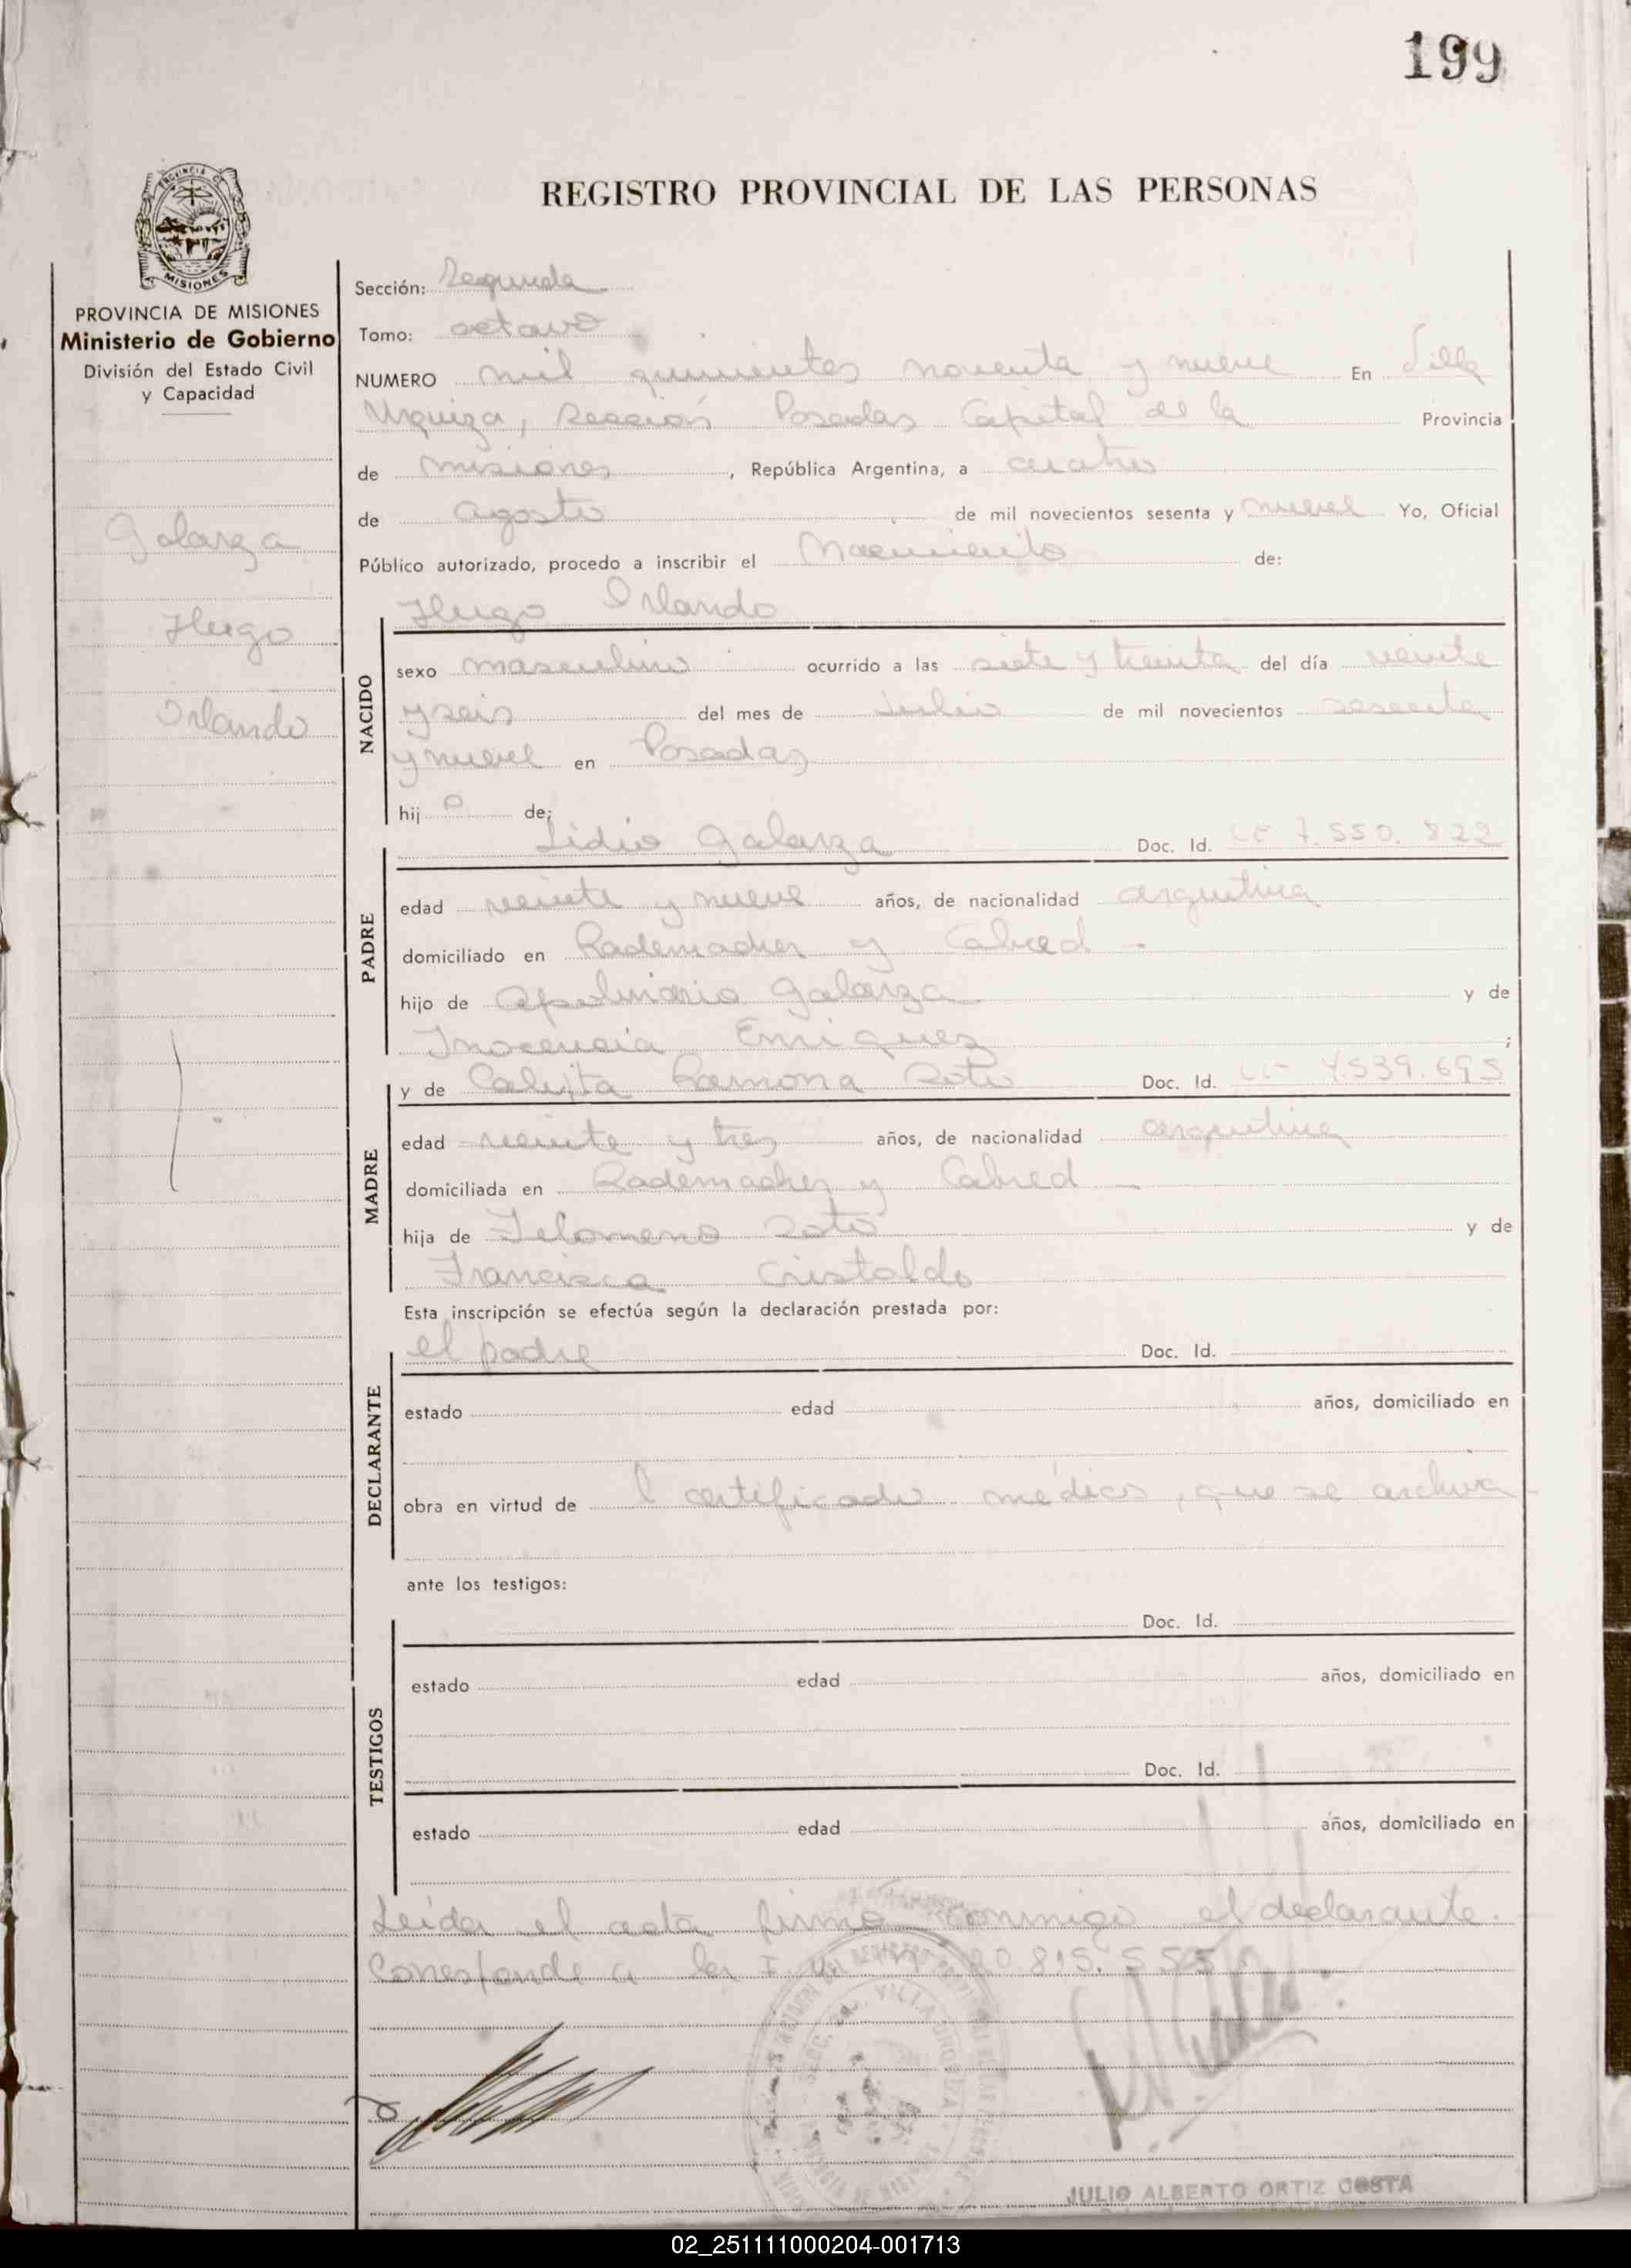 199
REGISTRO PROVINCIAL DE LAS PERSONAS
MISIONES
PROVINCIA DE MISIONES
Ministerio de Gobierno
División del Estado Civil
y Capacidad
Galarza
Hugo
Orlando
Sección: Segunda
Tomo: octavo
NUMERO mil quinientos noventa y nueve En Villa
Urquiza, Sección Posadas Capital de la Provincia
de Misiones, República Argentina, a cuatro
de agosto de mil novecientos sesenta y nueve Yo, Oficial
Público autorizado, procedo a inscribir el Nacimiento de:
Hugo Orlando
NACIDO
sexo masculino ocurrido a las siete y treinta del día veinte
y seis del mes de Julio de mil novecientos sesenta
y nueve en Posadas
hijo de;
Lidio Galarza Doc. Id. LE 7.550.822
PADRE
edad veinte y nueve años, de nacionalidad argentina
domiciliado en Rademacher y Cabred -
hijo de Apolinario Galarza y de
Inocencia Enriquez ;
y de Ramona Soto Doc. Id. LC 4.539.695
MADRE
edad veinte y tres años, de nacionalidad argentina
domiciliada en Rademacher y Cabred -
hija de Filomeno Soto y de
Francisca Cristaldo
Esta inscripción se efectúa según la declaración prestada por:
el padre Doc. Id.
DECLARANTE
estado edad años, domiciliado en
obra en virtud de l certificado médico, que se archiva
ante los testigos:
Doc. Id.
TESTIGOS
estado edad años, domiciliado en
Doc. Id.
estado edad años, domiciliado en
Leída el acta firma conmigo el declarante.
Corresponde a la 20.815.555
JULIO ALBERTO ORTIZ COSTA
02_251111000204-001713